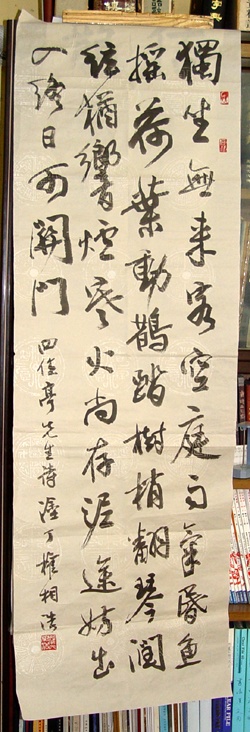 獨坐無來客空庭雨氣昏魚
搖荷葉動鵲踏樹梢翻琴潤
絃猶響爐寒火尚存泥途妨出
入終日可關門
四佳亭先生詩塗丁權相浩